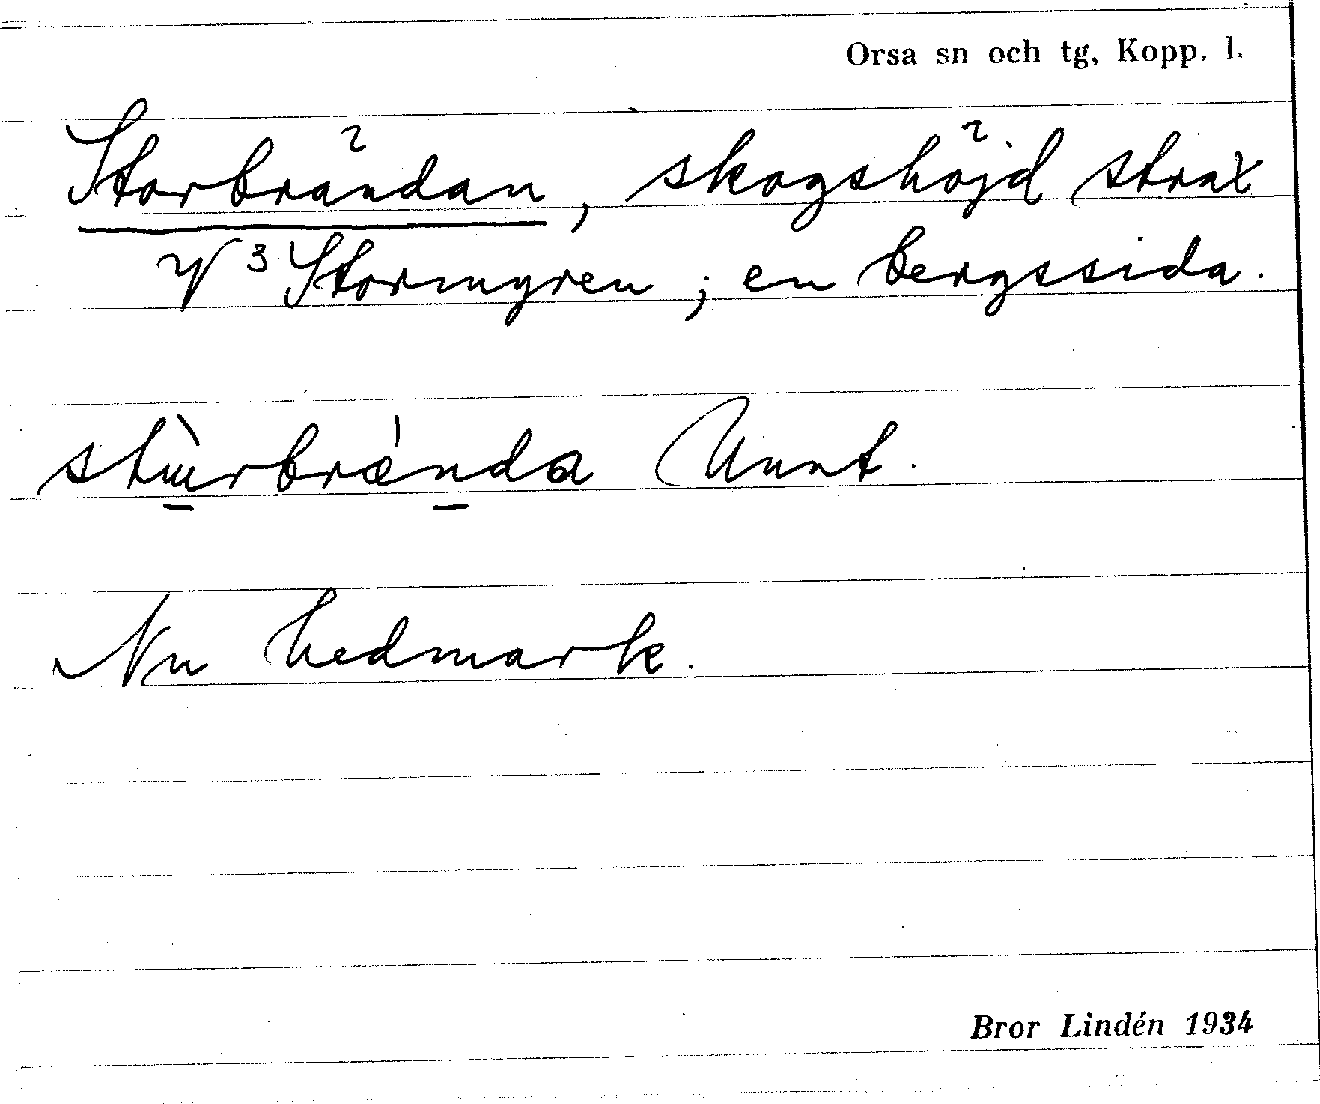 Orsa sn och tg, Kopp. l.
Storbrändan, skogshöjd strax
V 3 Stormyren ; en bergssida.
stùrbrǽnda Unnt.
Nu hedmark.
Bror Lindén 1934